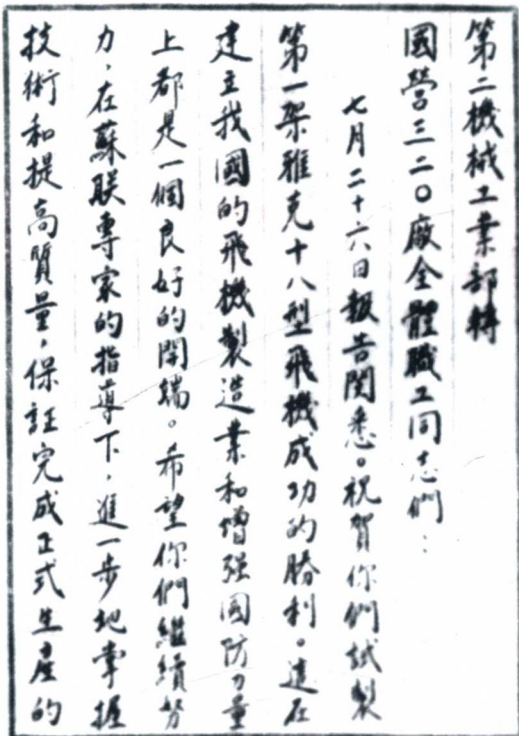 第二機械工業部轉
國營三二〇廠全體職工同志們：
七月二十六日報告閱悉。祝賀你們試製
第一架雅克十八型飛機成功的勝利。這在
建立我國的飛機製造業和增强國防力量
上都是一個良好的開端。希望你們繼續努
力，在蘇联專家的指導下，進一步地掌握
技術和提高質量，保証完成正式生産的